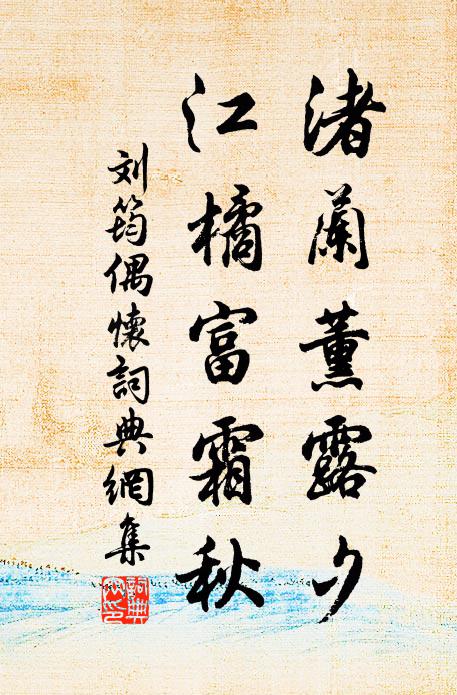 渚蘭薰露夕
江橘富霜秋
刘筠偶懷詞典網集